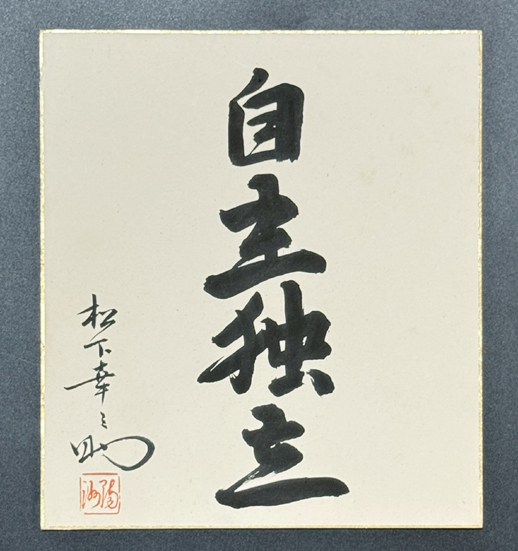 自主独立
松下幸之助